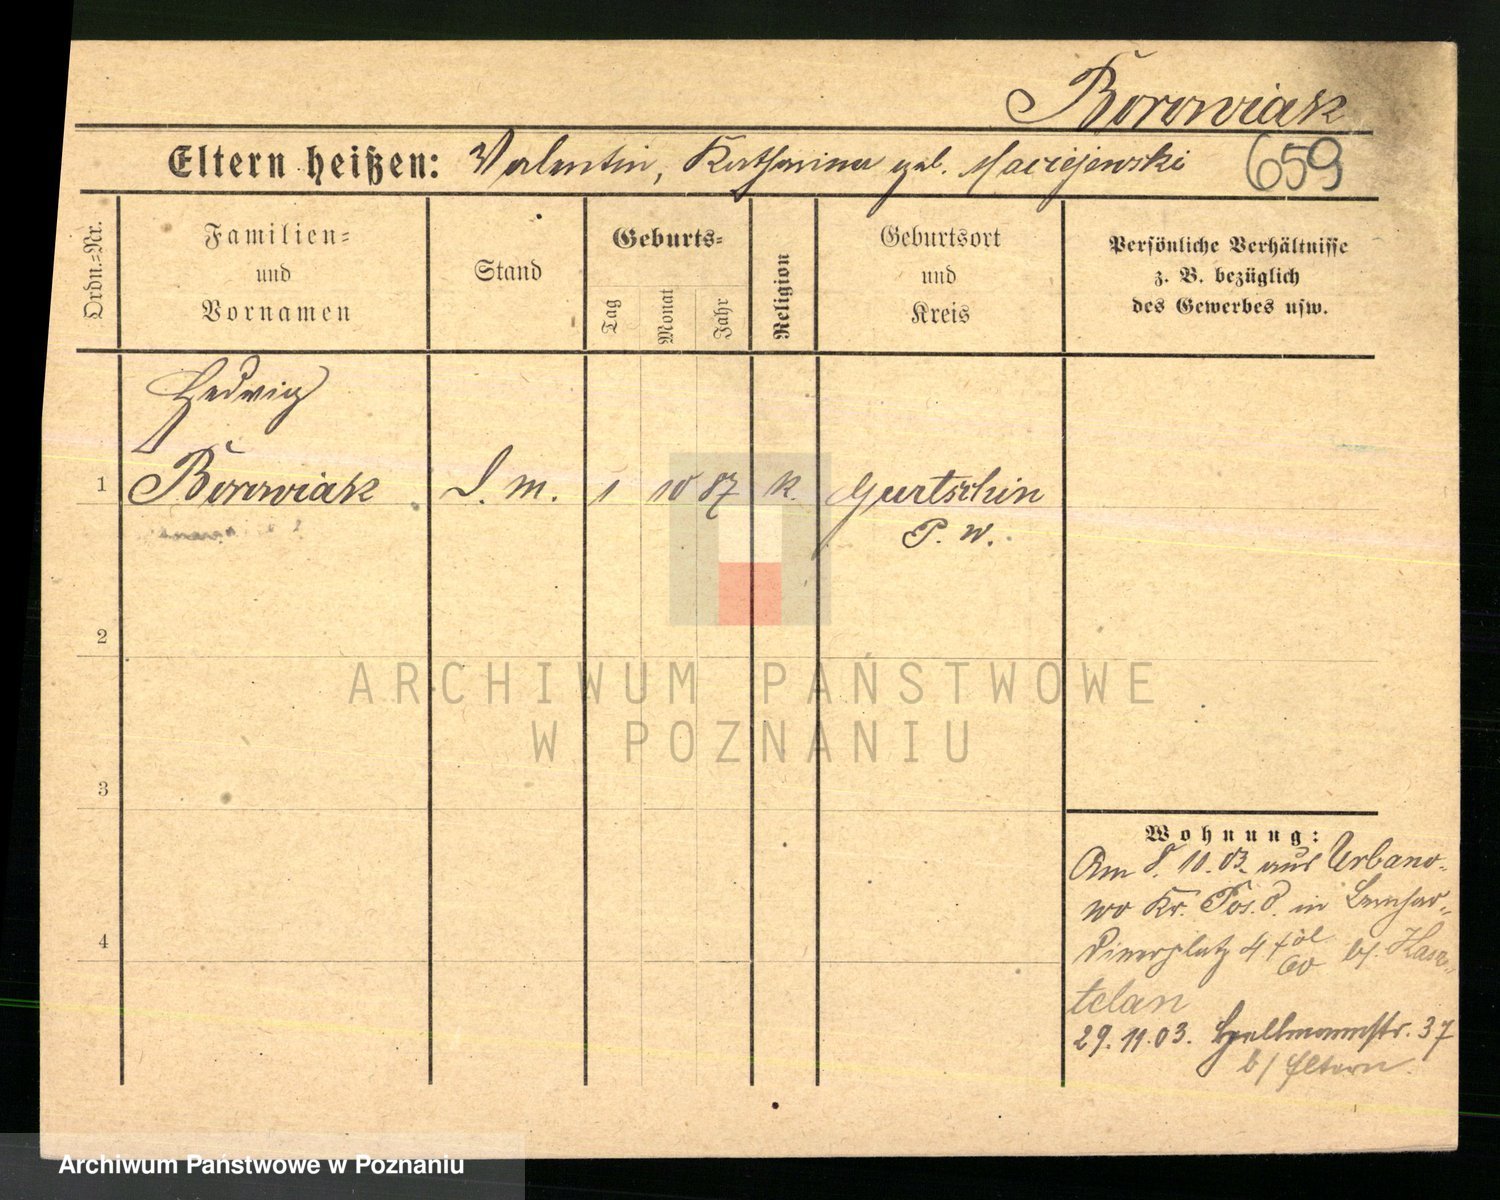 Borowiak
Eltern heißen: Valentin, Katharina geb. Maciejewski 659
Ordn.=Nr.
Familien=
und
Vornamen
Stand
Geburts=
Tag
Monat
Jahr
Religion
Geburtsort
und
Kreis
Persönliche Verhältnisse
z. B. bezüglich
des Gewerbes usw.
Hedwig
1 Borowiak D. m. 1 10 87 k. Gurtschin
P. W.
2
3
4
Wohnung:
Am 8. 10. 03. aus Urbano-
wo Kr. Pos. O. in Bernhar-
dinerplatz 4 bf. Kasz-
telan
29. 11. 03. Hellmannstr. 37
b/ Eltern.
ARCHIWUM PAŃSTWOWE
W POZNANIU
Archiwum Państwowe w Poznaniu